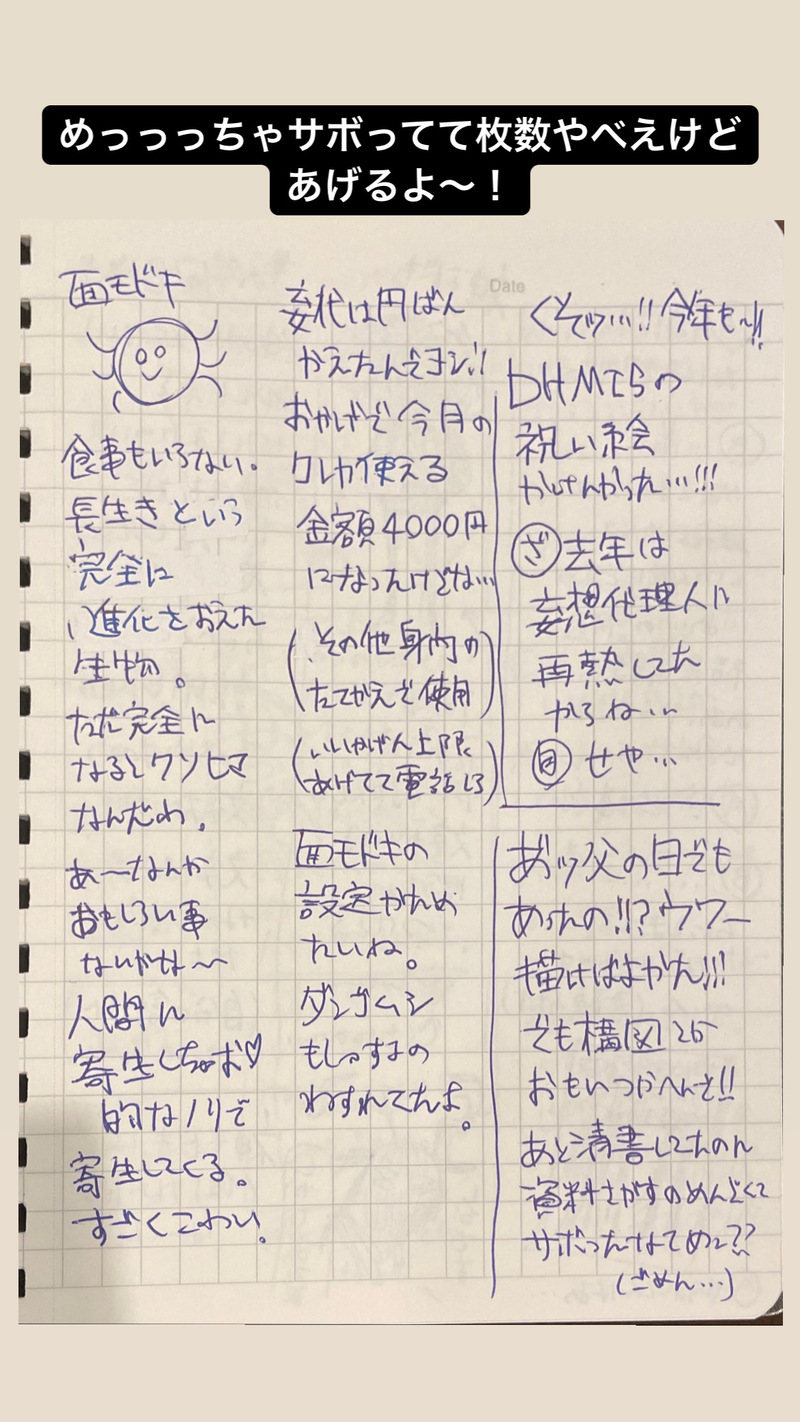 めっっっちゃサボってて枚数やべえけど
あげるよ〜！
面モドキ
食事もいらない。
長生きという
完全に
進化をおえた
生物。
ただ完全に
なるとクソヒマ
なんだわ。
あ〜なんか
おもしろい事
ないかな〜
人間に
寄生しちゃお♡
的なノリで
寄生してくる。
すごくこわい。
妄代は円ばん
かえたんでヨシ!!
おかげで今月の
クレカ使える
金額4000円
になったけどな…
(その他身内の
たてかえで使用)
(いいかげん上限
あげてって電話しろ)
面モドキの
設定かため
たいね。
ダンゴムシ
もしゅするの
わすれてたよ。
Date
くそッ…!!今年も〜!!
DHMISの
祝い絵
かけんかった…!!!
ざ 去年は
妄想代理人に
再熱してた
からね…
自 せや…
あッ父の日でも
あったの!!?ウワー
描けばよかた!!!
でも構図とか
おもいつかへんて!!
あと清書してたのに
資料さがすのめんどくて
サボったなてめー??
(ごめん…)